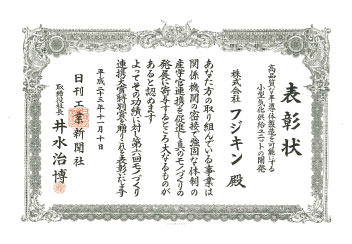 表彰状
高品質な半導体製造を可能にする
小型気化供給ユニットの開発
株式会社 フジキン 殿
あなた方の取り組んでいる事業は
関係機関の密接で強固な体制の
産学官連携を促進し真のモノづくりの
発展に寄与するところ大なるものが
あると認めます
よってその功績に対し第六回モノづくり
連携大賞特別賞を贈りこれを表彰します
平成二十三年十一月十日
日刊工業新聞社
取締役社長 井水治博